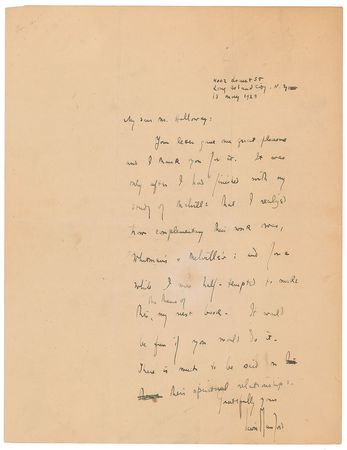 Long Island City, N.Y.
13 May 1929
My dear Mr. Holloway:
Your letter gave me great pleasure
and I thank you for it. It was
only after I had finished with my
study of Melville that I realized
how complementary their work was,
Whitman's & Melville's: and for a
while I was half-tempted to make
the theme of
this, my next book. It will
be fine if you would do it.
There is much to be said on
their spiritual relationships.
Faithfully yours